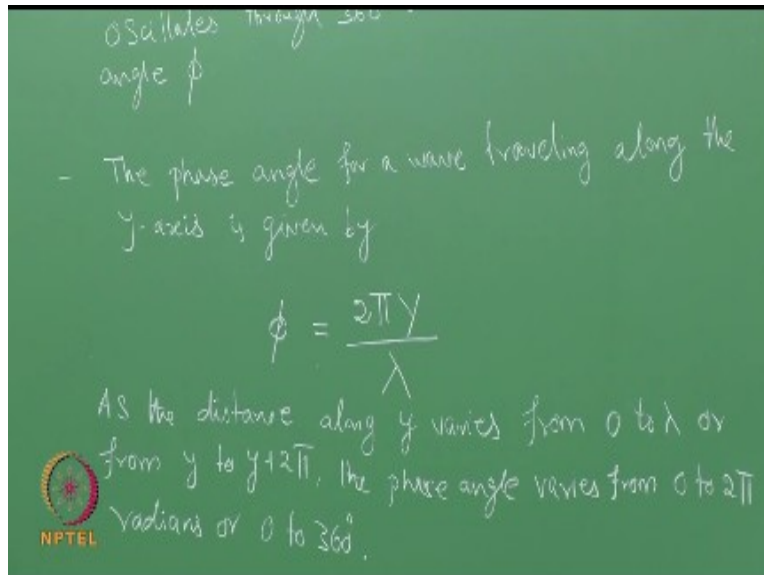 oscillates through 360°
angle ϕ
- The phase angle for a wave traveling along the
y-axis is given by
ϕ = 2πy / λ
As the distance along y varies from 0 to λ or
from y to y+2π, the phase angle varies from 0 to 2π
radians or 0 to 360°.
NPTEL